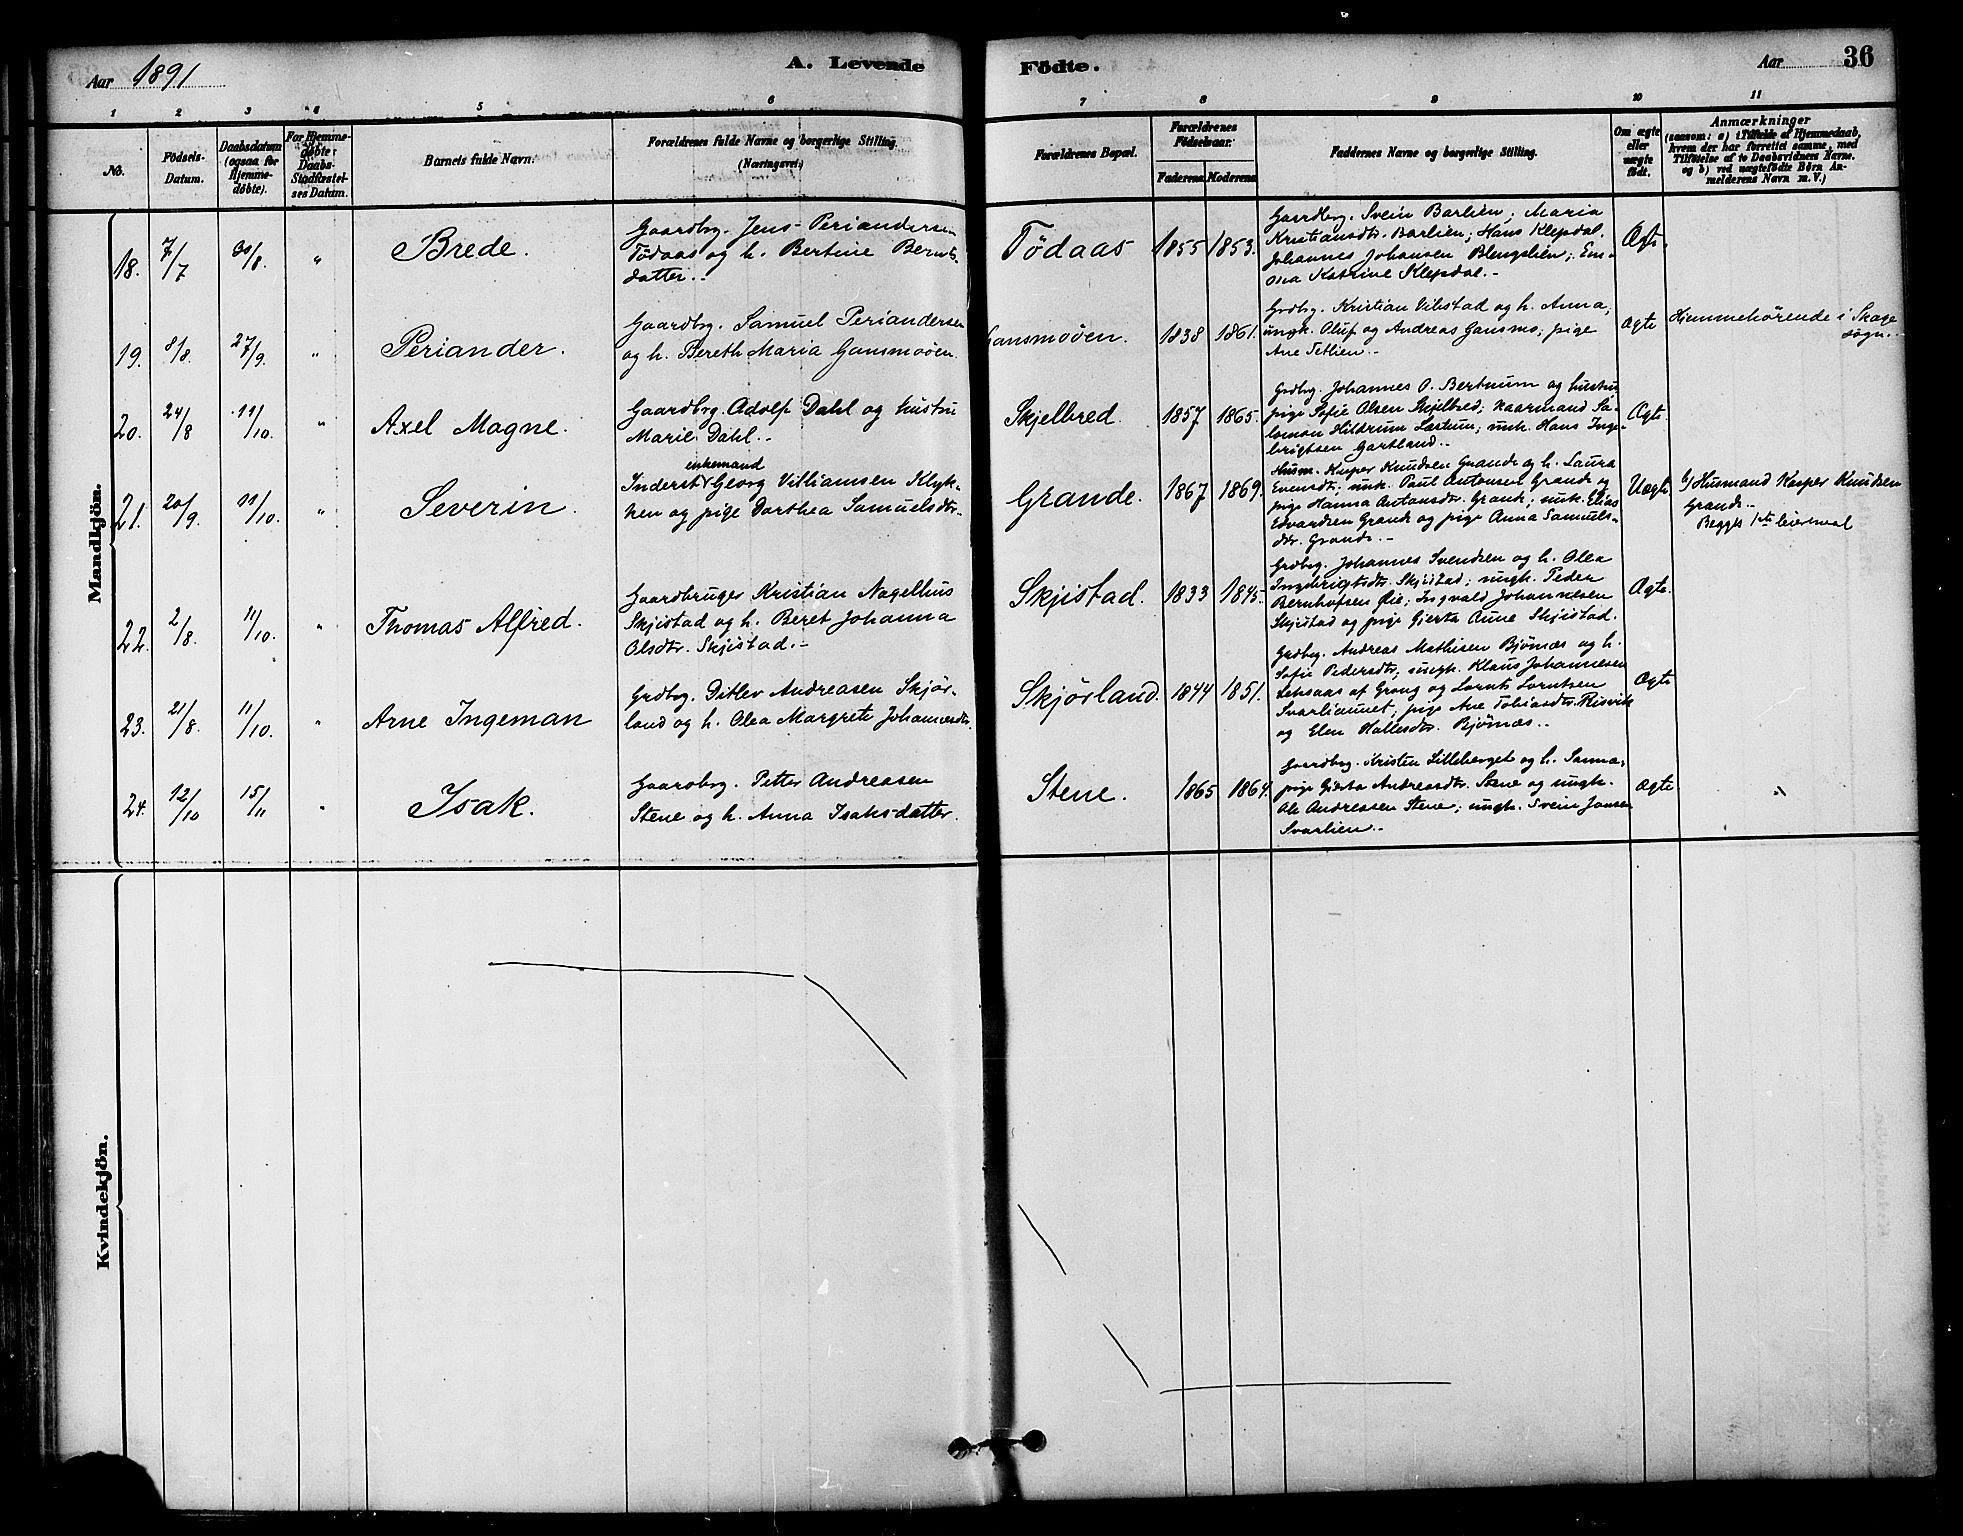 Aar 1891
A. Levende
Födte.
Aar 36
1 2 3 4 5 6 7 8 9 10 11
No.
Födsels-
Datum.
Daabsdatum
(ogsaa for
Hjemme-
døbte).
For Hjemme-
døbte:
Daabs-
Stadfæstel-
ses Datum.
Barnets fulde Navn.
Forældrenes fulde Navne og borgerlige Stilling.
(Næringsvei.)
Forældrenes Bopæl.
Forældrenes
Fødselsaar.
Faderens. Moderens.
Faddernes Navne og borgerlige Stilling.
Om ægte
eller
uægte
født.
Anmærkninger
(saasom: a) i Tilfælde af Hjemmedaab,
hvem der har forrettet samme, med
Tilføielse af to Daabsvidners Navne.
og b) ved uægtefødte Børn An-
melderens Navn m. V.)
Mandkjön.
18. 7/7 30/8. " Brede.
Gaardbrg. Jens Periandersen
Tödaas og h. Bertine Bernts-
datter.
Tödaas 1855 1853.
Gaardbrg. Svein Barlien; Maria
Kristiansdtr. Barlien; Hans Klepdal.
Johannes Johansen Blengslien; Em-
ma Katrine Klepdal.
Ægte.
19. 8/8. 27/9. " Periander.
Gaardbrg. Samuel Periandersen
og h. Bereth Maria Gansmoöen.
Gansmoöen. 1838 1861.
Grdbrg. Kristian Vibstad og h. Anna;
ungk. Oluf og Andreas Gansmo; pige
Ane Tetlien.
Ægte
Hjemmehörende i Skage
sogn.
20. 24/8 11/10. " Axel Magne.
Gaardbrg. Adolf Dahl og hustru
Marie Dahl.
Skjelbred. 1857 1865.
Grdbrg. Johannes O. Bertnum og hustru
pige Sofie Olsen Skjelbred; Kaarmand Sa-
lomon Hildrum Lastum; ungk. Hans Inge-
brigtsen Gartland.
Ægte.
21. 20/9. 11/10. " Severin.
enkemand
Inderst Georg Villiamsen Klyk-
ken og pige Dorthea Samuelsdtr.
Grande. 1867 1869.
Husm. Kasper Knudsen Grande og h. Laura
Evensdtr; ungk. Paul Antonsen Grande og
pige Hanna Antonsdtr. Grande; ungk. Elias
Edvardsen Grande og pige Anna Samuels-
dtr. Grande.
Uægte.
b/ Husmand Kasper Knudsen
Grande.
Begges 1ste leiermaal
22. 2/8. 11/10. " Thomas Alfred.
Gaardbruger Kristian Nagelhus
Skjistad og h. Beret Johanna
Olsdtr. Skjistad.
Skjistad. 1833 1845.
Grdbrg. Johannes Svendsen og h. Olea
Ingebrigtsdtr. Skjistad; ungk. Peder
Bernhofsen Øie; Ingvald Johannesen
Skjistad og pige Gjerta Aune Skjistad.
Ægte.
23. 21/8. 11/10. " Arne Ingeman
Grdbrg. Ditlev Andreasen Skjör-
land og h. Olea Margrete Johannesdtr.
Skjørland. 1844 1851.
Grdbrg. Andreas Mathisen Bjönnæs og h.
Sofie Pedersdtr; ungk. Klaus Johannesen
af Grong og Lornts Lorntsen
Svarliaunet; pige Ane Tobiasdtr. Risvik
og Elen Hallesdtr. Bjönnæs.
Ægte
24. 12/10 15/11 " Isak.
Gaardbrg. Petter Andreasen
Stene og h. Anna Isaksdatter.
Stene. 1865 1864.
Gaardbrg. Kristen Lilleberget og h. Sanna;
pige Gjerta Andreasdtr. Stene og ungk.
Ole Andreasen Stene; ungk. Svein Jonsen
Svarlien.
Ægte
"
Kvindekjön.